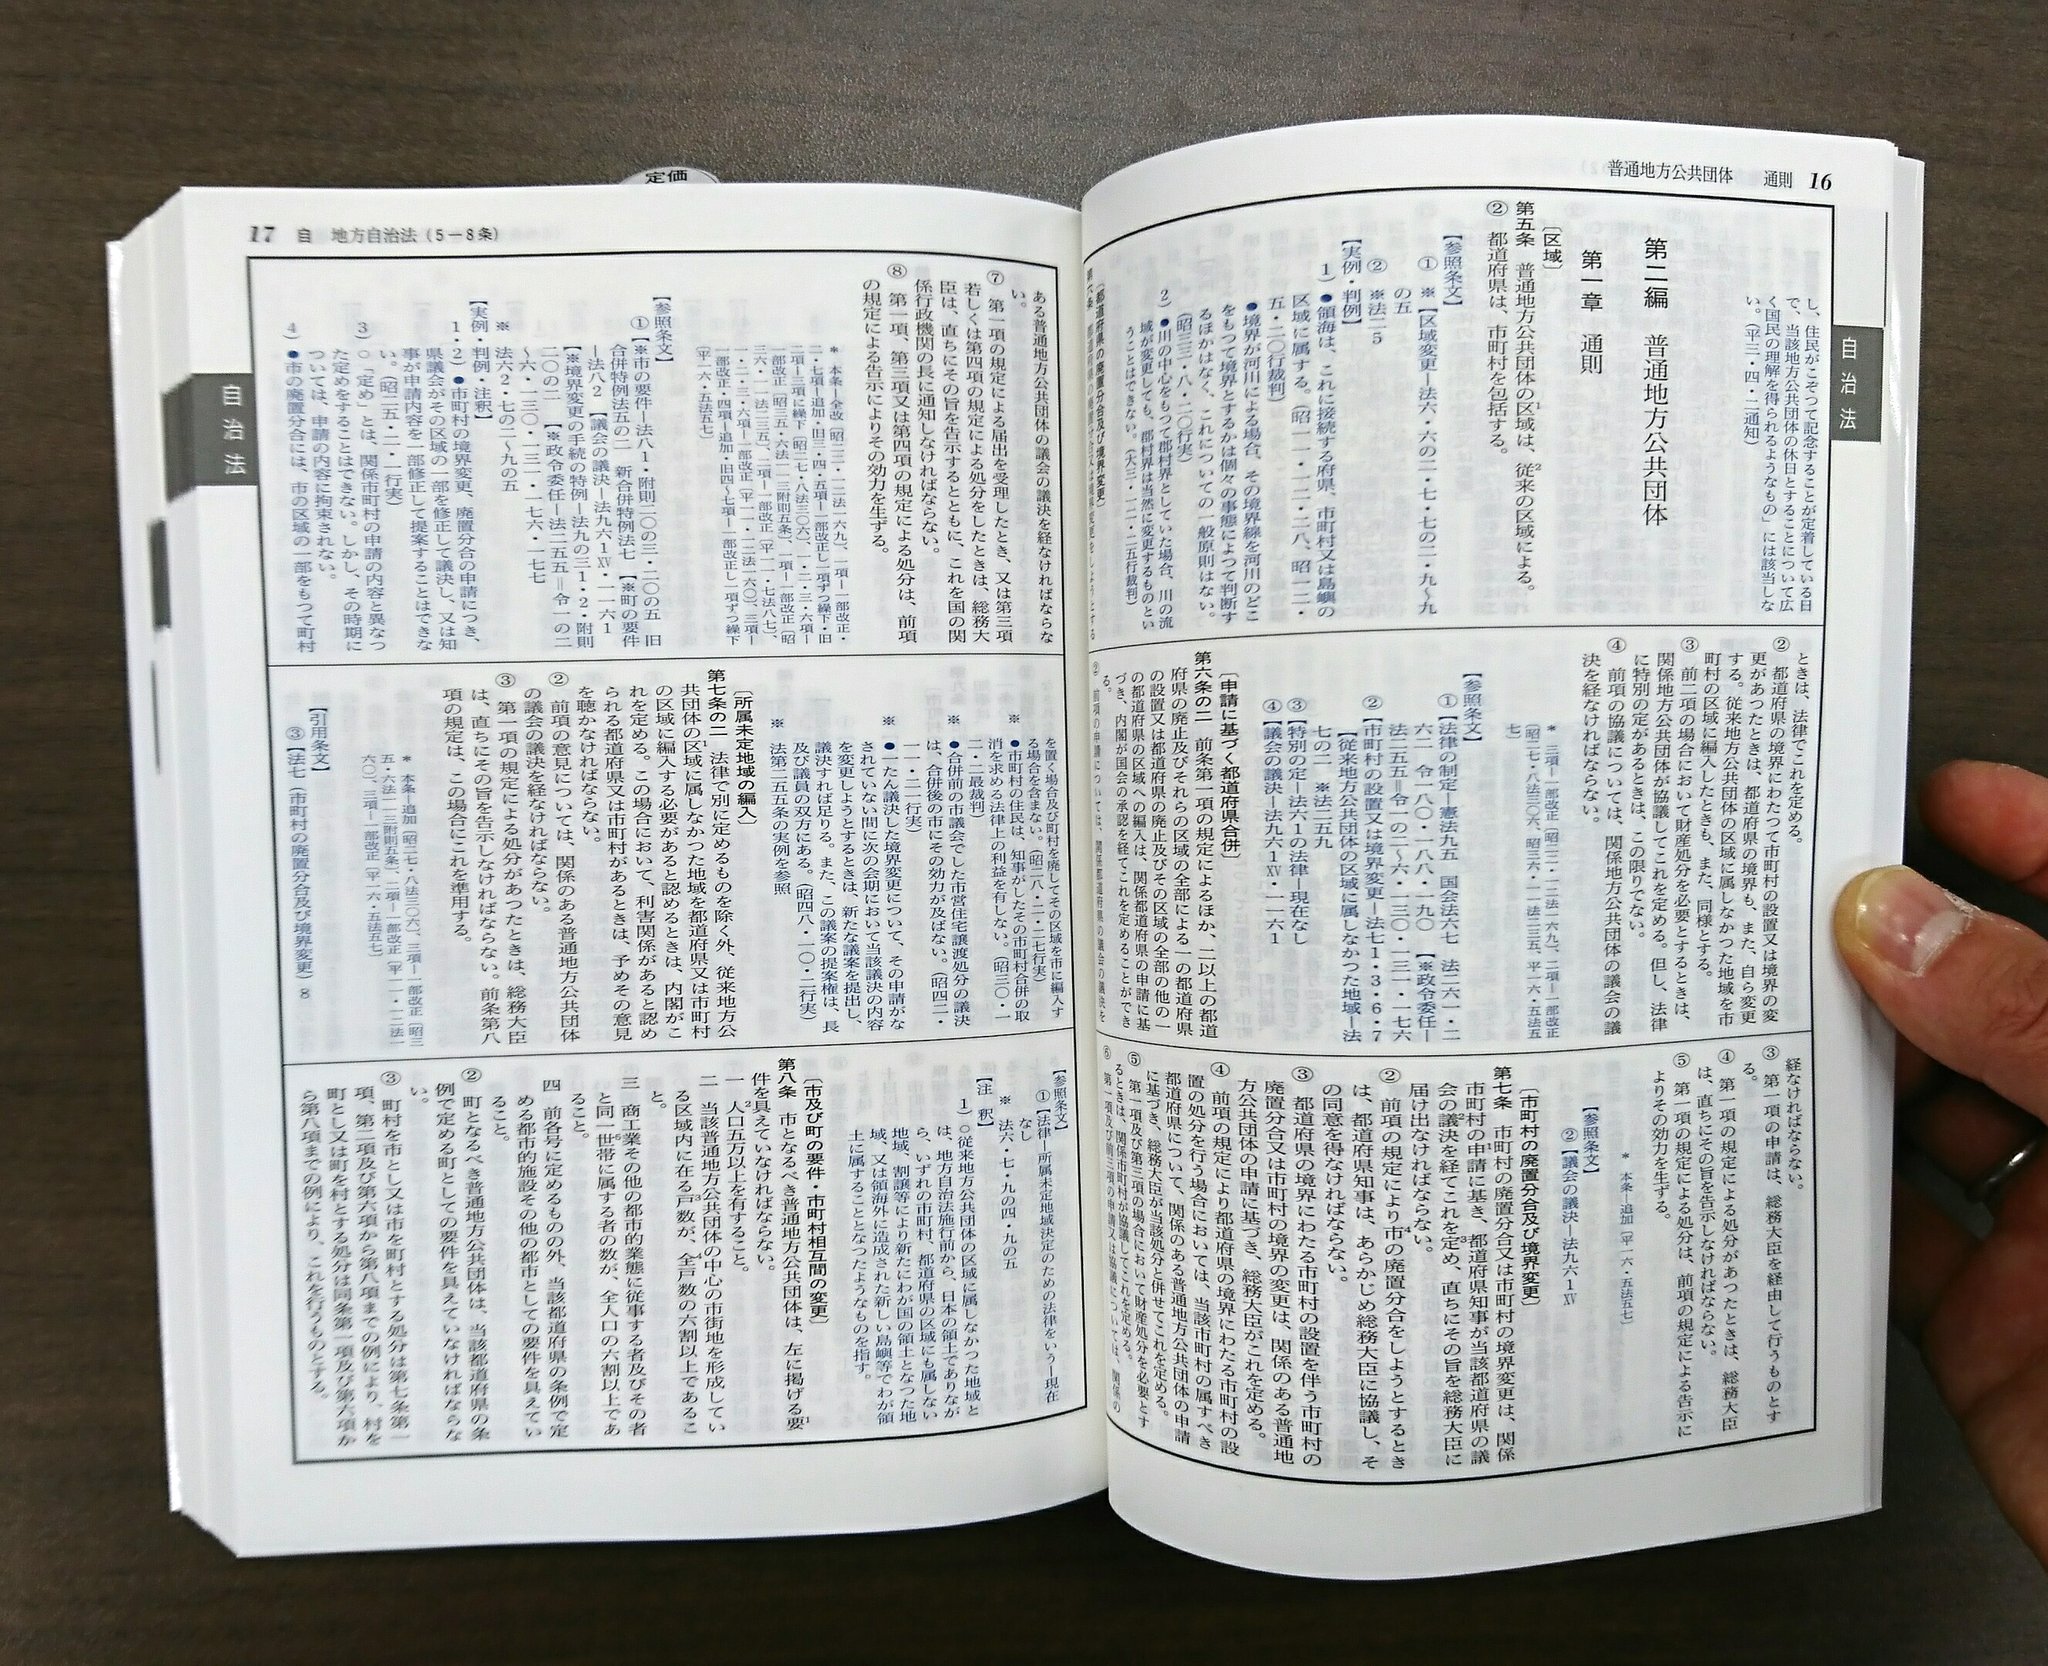 普通地方公共団体　通則 16
自治法
し、住民がこぞつて記念することが定着している日
で、当該地方公共団体の休日とすることについて広
く国民の理解を得られるようなもの」には該当しな
い。（平三・四・二通知）
第二編　普通地方公共団体
第一章　通則
〔区域〕
第五条　普通地方公共団体の区域は、従来の区域による。
②　都道府県は、市町村を包括する。
【参照条文】
①　※【区域変更―法六・六の二・七・七の二・九～九
の五
②　※法二5
【実例・判例】
1）●領海は、これに接続する府県、市町村又は島嶼の
区域に属する。（昭一一・一二・二八、昭一二・
五・二〇行裁判）
●境界が河川による場合、その境界線を河川のどこ
をもつて境界とするかは個々の事態によつて判断す
るほかはなく、これについての一般原則はない。
（昭三三・八・二〇行実）
2）●川の中心をもつて郡村界としていた場合、川の流
域が変更しても、郡村界は当然に変更するものとい
うことはできない。（大三・一二・二五行裁判）
〔都道府県の廃置分合及び境界変更〕
ときは、法律でこれを定める。
②　都道府県の境界にわたつて市町村の設置又は境界の変
更があつたときは、都道府県の境界も、また、自ら変更
する。従来地方公共団体の区域に属しなかつた地域を市
町村の区域に編入したときも、また、同様とする。
③　前二項の場合において財産処分を必要とするときは、
関係地方公共団体が協議してこれを定める。但し、法律
に特別の定があるときは、この限りでない。
④　前項の協議については、関係地方公共団体の議会の議
決を経なければならない。
【参照条文】
①【法律の制定―憲法九五　国会法六七　法二六一・二
六二　令一八〇・一八八・一九〇　【※政令委任―
法二五五＝令一の二～六・一三〇・一三一・一七六
②【市町村の設置又は境界変更―法七1・3・6・7
【従来地方公共団体の区域に属しなかつた地域―法
七の二　※法二五九
③【特別の定―法六1の法律―現在なし
④【議会の議決―法九六1XV・一一六1
〔申請に基づく都道府県合併〕
第六条の二　前条第一項の規定によるほか、二以上の都道
府県の廃止及びそれらの区域の全部による一の都道府県
の設置又は都道府県の廃止及びその区域の全部の他の一
の都道府県の区域への編入は、関係都道府県の申請に基
づき、内閣が国会の承認を経てこれを定めることができ
る。
②　前項の申請については、関係都道府県の議会の議決を
経なければならない。
③　第一項の申請は、総務大臣を経由して行うものとす
る。
④　第一項の規定による処分があつたときは、総務大臣
は、直ちにその旨を告示しなければならない。
⑤　第一項の規定による処分は、前項の規定による告示に
よりその効力を生ずる。
＊　本条―追加〔平一六・五法五七〕
【参照条文】
②【議会の議決―法九六1XV
〔市町村の廃置分合及び境界変更〕
第七条　市町村の廃置分合又は市町村の境界変更は、関係
市町村の申請に基き、都道府県知事が当該都道府県の議
会の議決を経てこれを定め、直ちにその旨を総務大臣に
届け出なければならない。
②　前項の規定により市の廃置分合をしようとするとき
は、都道府県知事は、あらかじめ総務大臣に協議し、そ
の同意を得なければならない。
③　都道府県の境界にわたる市町村の設置を伴う市町村の
廃置分合又は市町村の境界の変更は、関係のある普通地
方公共団体の申請に基づき、総務大臣がこれを定める。
④　前項の規定により都道府県の境界にわたる市町村の設
置の処分を行う場合においては、当該市町村の属すべき
都道府県について、関係のある普通地方公共団体の申請
に基づき、総務大臣が当該処分と併せてこれを定める。
⑤　第一項及び第三項の場合において財産処分を必要とす
るときは、関係市町村が協議してこれを定める。
⑥　第一項及び前三項の申請又は協議については、関係の
定価
17　自　地方自治法（5―8条）
自治法
ある普通地方公共団体の議会の議決を経なければならな
い。
⑦　第一項の規定による届出を受理したとき、又は第三項
若しくは第四項の規定による処分をしたときは、総務大
臣は、直ちにその旨を告示するとともに、これを国の関
係行政機関の長に通知しなければならない。
⑧　第一項、第三項又は第四項の規定による処分は、前項
の規定による告示によりその効力を生ずる。
【参照条文】
①※市の要件―法八1・附則二〇の三・二〇の五　旧
合併特例法五の二　新合併特例法七　【※町の要件
―法八2　【議会の議決―法九六1XV・一一六1
【※境界変更の手続の特例―法九の三1・2・附則
二〇の二　【※政令委任―法二五五＝令一の二
～六・一三〇・一三一・一七六・一七七
※　法六2・七の二～九の五
【実例・判例・注釈】
1・2）●市町村の境界変更、廃置分合の申請につき、
県議会がその区域の一部を修正して議決し、又は知
事が申請内容を一部修正して提案することはできな
い。（昭二五・二・一行実）
3）○「定め」とは、関係市町村の申請の内容と異なつ
た定めをすることはできない。しかし、その時期に
ついては、申請の内容に拘束されない。
4）●市の廃置分合には、市の区域の一部をもつて町村
を置く場合及び町村を廃してその区域を市に編入す
る場合を含まない。（昭二八・二・二七行実）
※●市町村の住民は、知事がしたその市町村合併の取
消を求める法律上の利益を有しない。（昭三〇・一
二・二最裁判）
※●合併前の市議会でした市営住宅譲渡処分の議決
は、合併後の市にその効力が及ばない。（昭四二・
一一・二一行実）
※●一たん議決した境界変更について、その申請がな
されていない間に次の会期において当該議決の内容
を変更しようとするときは、新たな議案を提出し、
議決すれば足りる。また、この議案の提案権は、長
及び議員の双方にある。（昭四八・一〇・二行実）
※　法第二五五条の実例を参照
〔所属未定地域の編入〕
第七条の二　法律で別に定めるものを除く外、従来地方公
共団体の区域に属しなかつた地域を都道府県又は市町村
の区域に編入する必要があると認めるときは、内閣がこ
れを定める。この場合において、利害関係があると認め
られる都道府県又は市町村があるときは、予めその意見
を聴かなければならない。
②　前項の意見については、関係のある普通地方公共団体
の議会の議決を経なければならない。
③　第一項の規定による処分があつたときは、総務大臣
は、直ちにその旨を告示しなければならない。前条第八
項の規定は、この場合にこれを準用する。
＊　本条―追加〔昭二七・八法三〇六〕、三項―一部改正〔昭三
五・六法一一三附則五条〕、二項―一部改正〔平一一・一二法一
六〇〕、三項―一部改正〔平一六・五法五七〕
【引用条文】
③【法七（市町村の廃置分合及び境界変更）8
【参照条文】
①【法律―所属未定地域決定のための法律をいう―現在
なし
※　法六・七・九の四・九の五
【注　釈】
1）○従来地方公共団体の区域に属しなかつた地域と
は、地方自治法施行前から、日本の領土でありなが
ら、いずれの市町村、都道府県の区域にも属しない
地域、割譲等により新たにわが国の領土となつた地
域、又は領海外に造成された新しい島嶼等でわが領
土に属することとなつたようなものを指す。
〔市及び町の要件・市町村相互間の変更〕
第八条　市となるべき普通地方公共団体は、左に掲げる要
件を具えていなければならない。
一　人口五万以上を有すること。
二　当該普通地方公共団体の中心の市街地を形成してい
る区域内に在る戸数が、全戸数の六割以上であるこ
と。
三　商工業その他の都市的業態に従事する者及びその者
と同一世帯に属する者の数が、全人口の六割以上であ
ること。
四　前各号に定めるものの外、当該都道府県の条例で定
める都市的施設その他の都市としての要件を具えてい
ること。
②　町となるべき普通地方公共団体は、当該都道府県の条
例で定める町としての要件を具えていなければならな
い。
③　町村を市とし又は市を町村とする処分は第七条第一
項、第二項及び第六項から第八項までの例により、村を
町とし又は町を村とする処分は同条第一項及び第六項か
ら第八項までの例により、これを行うものとする。